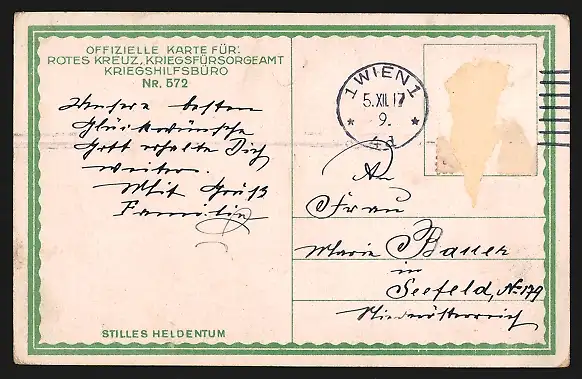 OFFIZIELLE KARTE FÜR:
ROTES KREUZ, KRIEGSFÜRSORGEAMT
KRIEGSHILFSBÜRO
NR. 572
Unsere besten
Glückwünsche
Gott erhalte Dich
weiter.
Mit Gruß
Familie
STILLES HELDENTUM
1 WIEN 1
5.XII.17
9.
An
Frau
Marie Bauer
in
Seefeld, No 179
Niederösterreich